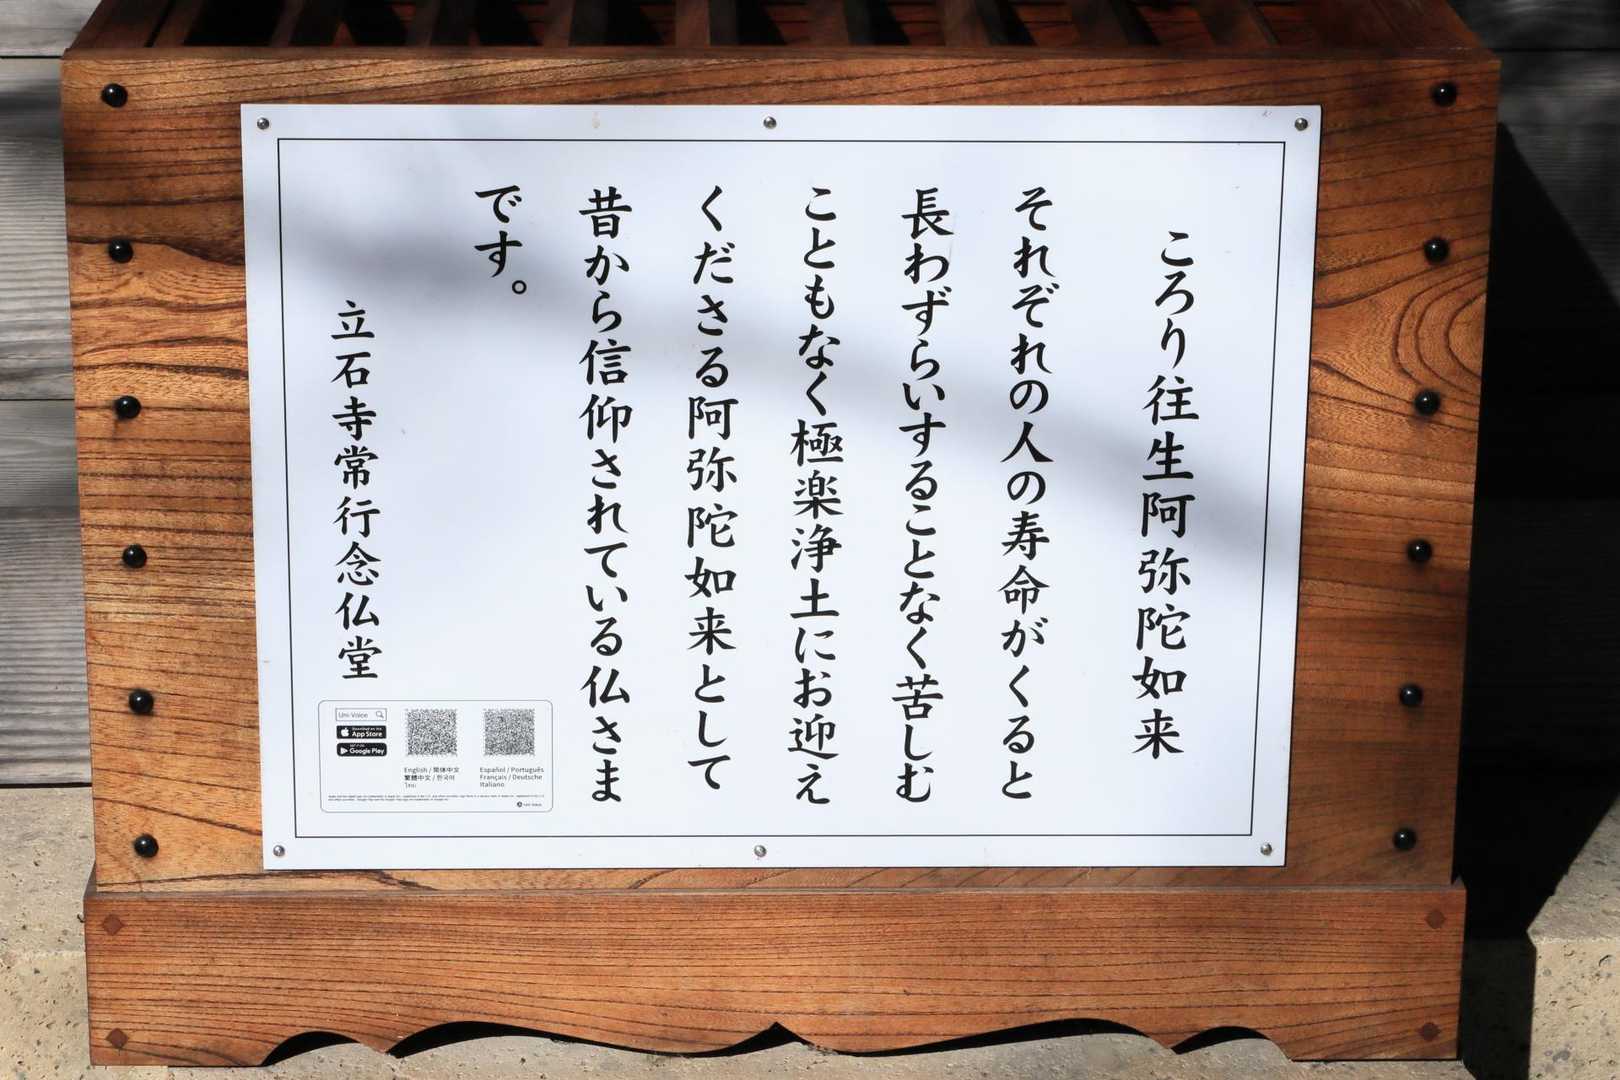 ころり往生阿弥陀如来
それぞれの人の寿命がくると
長わずらいすることなく苦しむ
こともなく極楽浄土にお迎え
くださる阿弥陀如来として
昔から信仰されている仏さま
です。
立石寺常行念仏堂
Uni-Voice
Download on the
App Store
GET IT ON
Google Play
English / 简体中文
繁體中文 / 한국어
ไทย
Español / Português
Français / Deutsche
Italiano
Uni-Voice